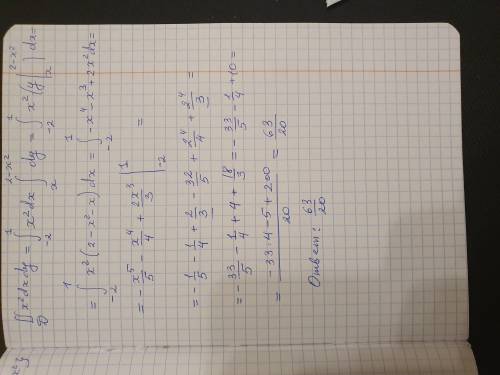 ∬_D x² dx dy = ∫_{-2}^{1} x² dx ∫_{x}^{2-x²} dy = ∫_{-2}^{1} x² (y |_{x}^{2-x²}) dx =
= ∫_{-2}^{1} x² (2 - x² - x) dx = ∫_{-2}^{1} -x⁴ - x³ + 2x² dx =
= - x⁵/5 - x⁴/4 + 2x³/3 |_{-2}^{1} =
= - 1/5 - 1/4 + 2/3 - 32/5 + 2⁴/4 + 2⁴/3 =
= - 33/5 - 1/4 + 4 + 18/3 = - 33/5 - 1/4 + 10 =
= (-33·4 - 5 + 200)/20 = 63/20
Ответ: 63/20